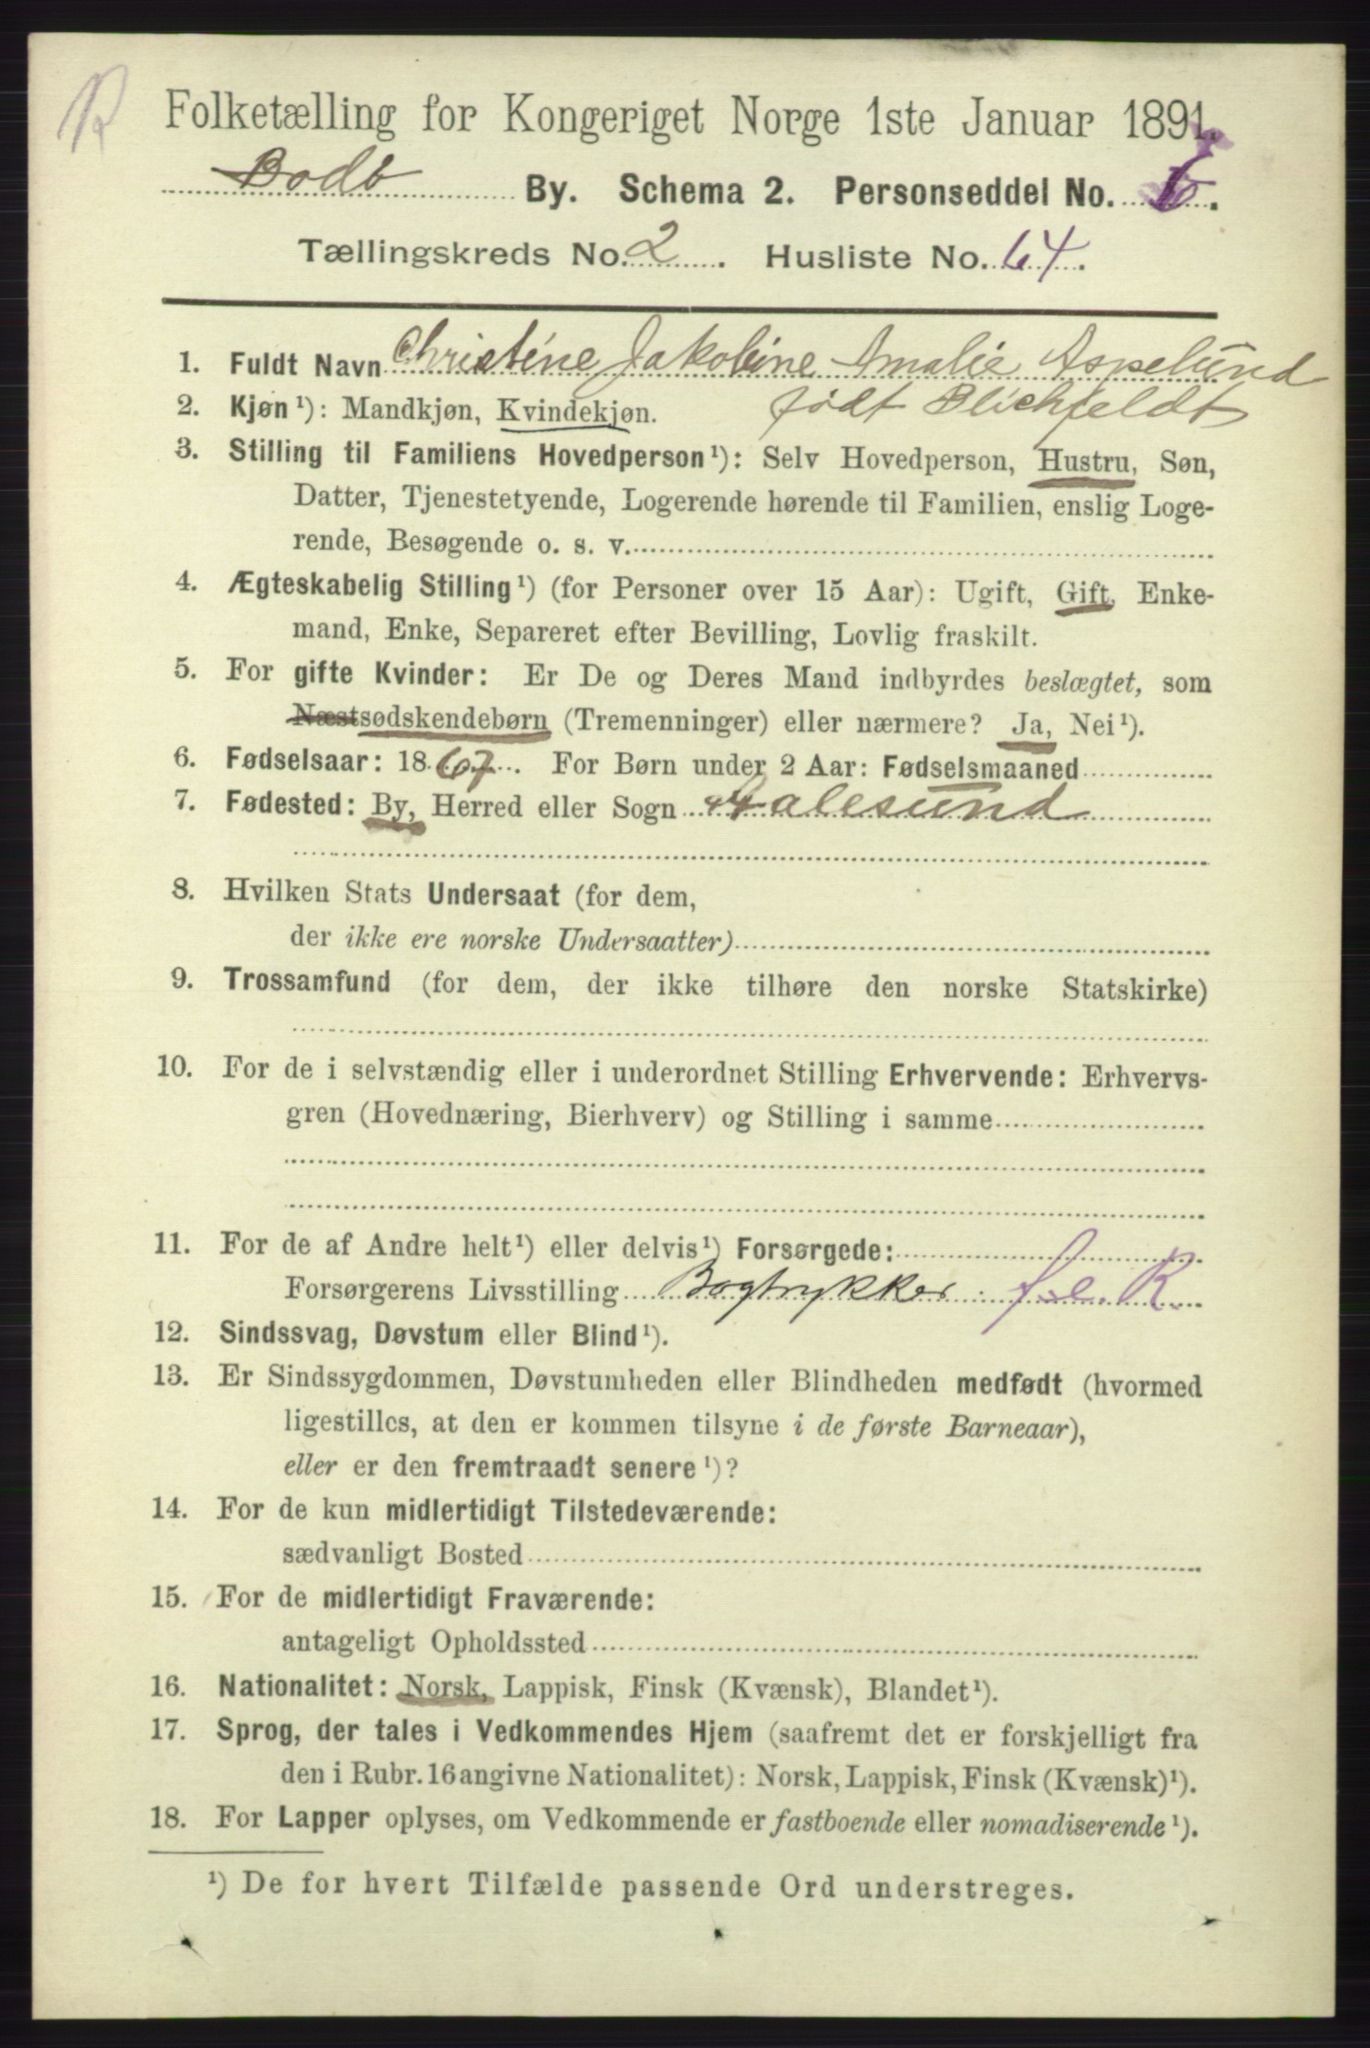 R
Folketælling for Kongeriget Norge 1ste Januar 1891.
Bodö By. Schema 2. Personseddel No. 6.
Tællingskreds No. 2. Husliste No. 64.
1. Fuldt Navn Christine Jakobine Amalie Aspelund
født Blichfeldt
2. Kjøn¹): Mandkjøn, Kvindekjøn.
3. Stilling til Familiens Hovedperson¹): Selv Hovedperson, Hustru, Søn,
Datter, Tjenestetyende, Logerende hørende til Familien, enslig Loge-
rende, Besøgende o. s. v.
4. Ægteskabelig Stilling¹) (for Personer over 15 Aar): Ugift, Gift, Enke-
mand, Enke, Separeret efter Bevilling, Lovlig fraskilt.
5. For gifte Kvinder: Er De og Deres Mand indbyrdes beslægtet, som
Næstsødskendebørn (Tremenninger) eller nærmere? Ja, Nei¹).
6. Fødselsaar: 1867. For Børn under 2 Aar: Fødselsmaaned
7. Fødested: By, Herred eller Sogn Aalesund
8. Hvilken Stats Undersaat (for dem,
der ikke ere norske Undersaatter)
9. Trossamfund (for dem, der ikke tilhøre den norske Statskirke)
10. For de i selvstændig eller i underordnet Stilling Erhvervende: Erhvervs-
gren (Hovednæring, Bierhverv) og Stilling i samme
11. For de af Andre helt¹) eller delvis¹) Forsørgede:
Forsørgerens Livsstilling Bogtrykker. R.
12. Sindssvag, Døvstum eller Blind¹).
13. Er Sindssygdommen, Døvstumheden eller Blindheden medfødt (hvormed
ligestilles, at den er kommen tilsyne i de første Barneaar),
eller er den fremtraadt senere¹)?
14. For de kun midlertidigt Tilstedeværende:
sædvanligt Bosted
15. For de midlertidigt Fraværende:
antageligt Opholdssted
16. Nationalitet: Norsk, Lappisk, Finsk (Kvænsk), Blandet¹).
17. Sprog, der tales i Vedkommendes Hjem (saafremt det er forskjelligt fra
den i Rubr. 16 angivne Nationalitet): Norsk, Lappisk, Finsk (Kvænsk)¹).
18. For Lapper oplyses, om Vedkommende er fastboende eller nomadiserende¹).
¹) De for hvert Tilfælde passende Ord understreges.